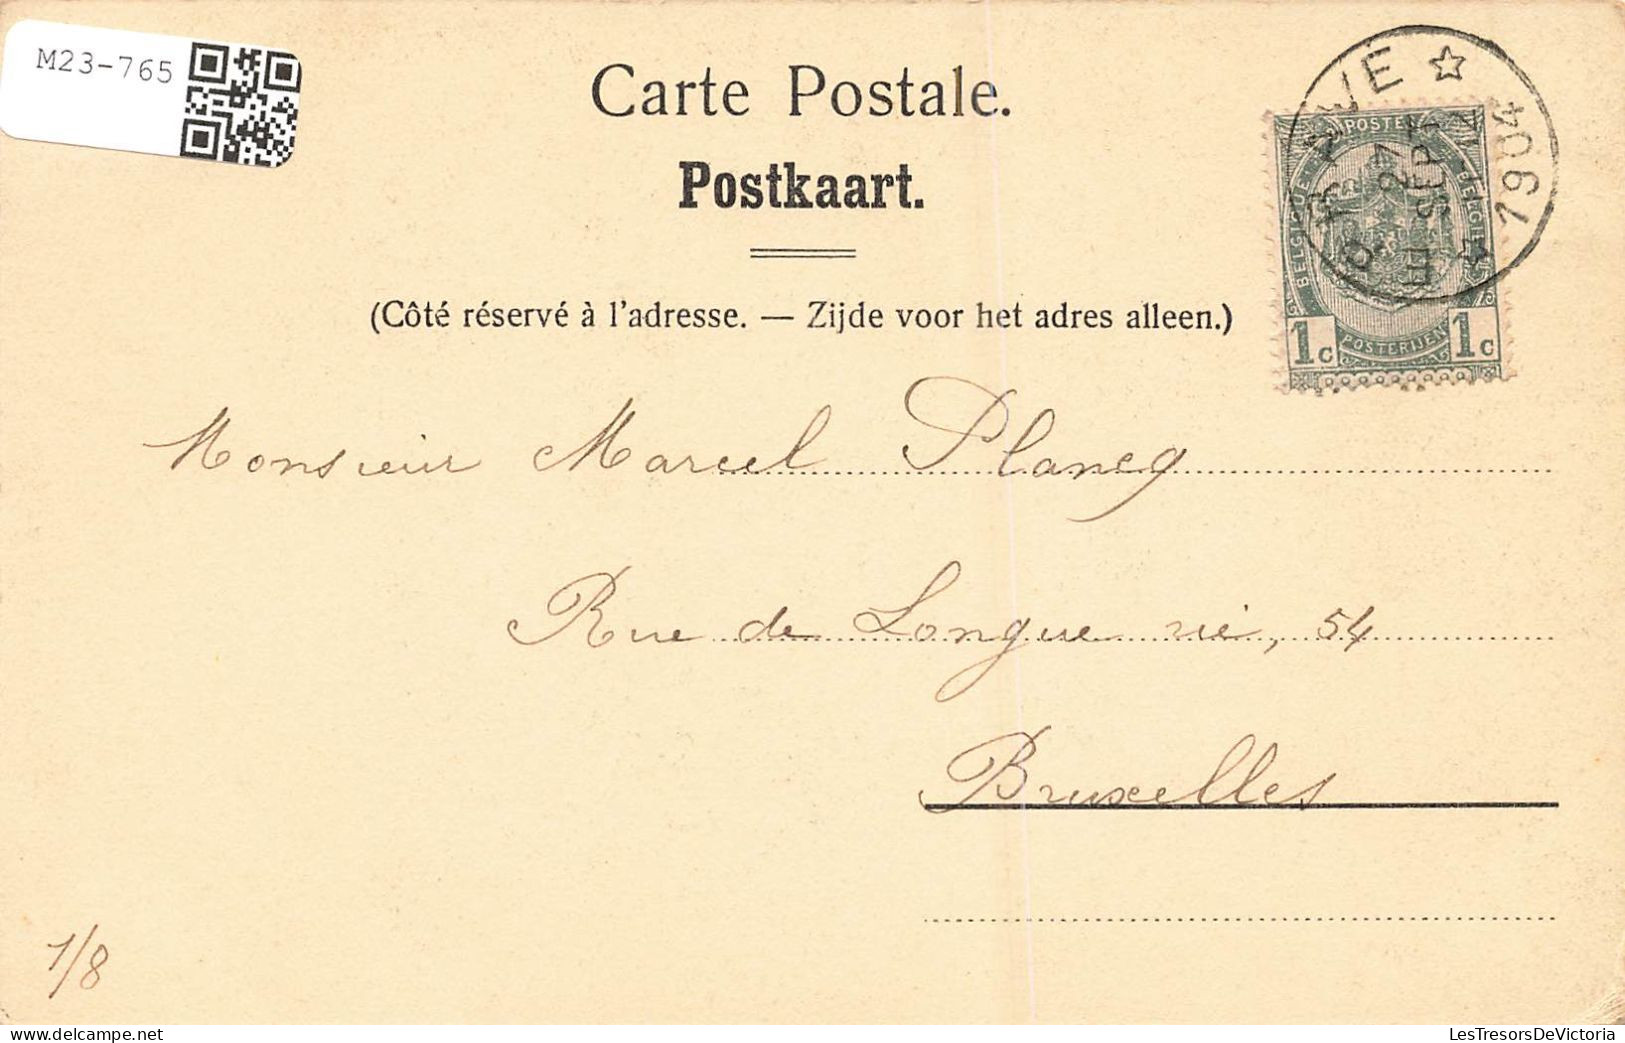 M23-765
Carte Postale.
Postkaart.
(Côté réservé à l'adresse. — Zijde voor het adres alleen.)
1904
27
SEPT
BELGIQUE POSTES BELGIE
1c POSTERIJEN 1c
Monsieur Marcel Plancq
Rue de Longue vie, 54
Bruxelles
1/8
LesTresorsDeVictoria
delcampe.net